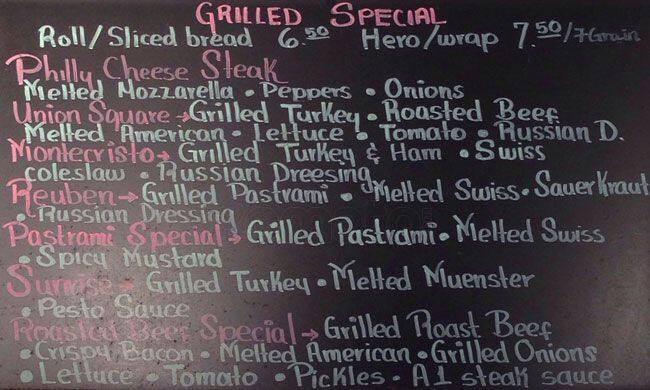 GRILLED SPECIAL
Roll/Sliced bread 6.50 Hero/wrap 7.50/7Grain
Philly Cheese Steak
Melted Mozzarella • Peppers • Onions
Union Square → Grilled Turkey • Roasted Beef
Melted American • Lettuce • Tomato • Russian D.
Montecristo → Grilled Turkey & Ham • Swiss
coleslaw • Russian Dreesing
Reuben → Grilled Pastrami • Melted Swiss • SauerKraut
• Russian Dressing
Pastrami Special → Grilled Pastrami • Melted Swiss
• Spicy Mustard
Sunrise → Grilled Turkey • Melted Muenster
• Pesto Sauce
Roasted Beef Special → Grilled Roast Beef
• Crispy Bacon • Melted American • Grilled Onions
• Lettuce • Tomato • Pickles • A1 steak sauce